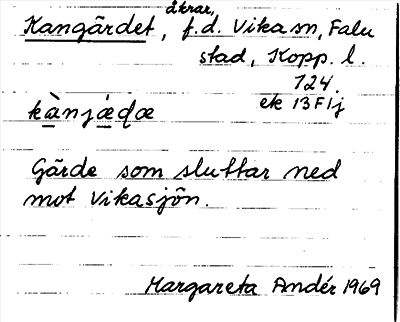 åkrar,
Kangärdet, f.d. Vika sn, Falu
stad, Kopp. l.
124.
ek 13 F1j
kànjǽɖæ
Gärde som sluttar ned
mot Vikasjön.
Margareta Andér 1969